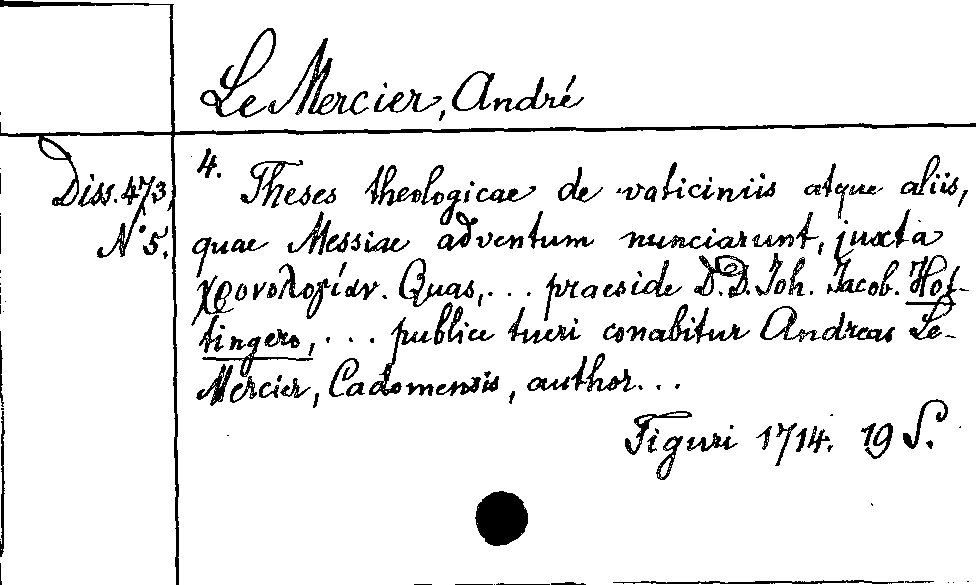 Le Mercier, André
Diss. 473,
N° 5.
4. Theses theologicae de vaticiniis atque aliis,
quae Messiae adventum nunciarunt, juxta
χρονολογίαν. Quas, ... praeside D.D. Joh. Jacob. Hot-
tingero, ... publice tueri conabitur Andreas Le-
Mercier, Cadomensis, author...
Tiguri 1714. 19 S.